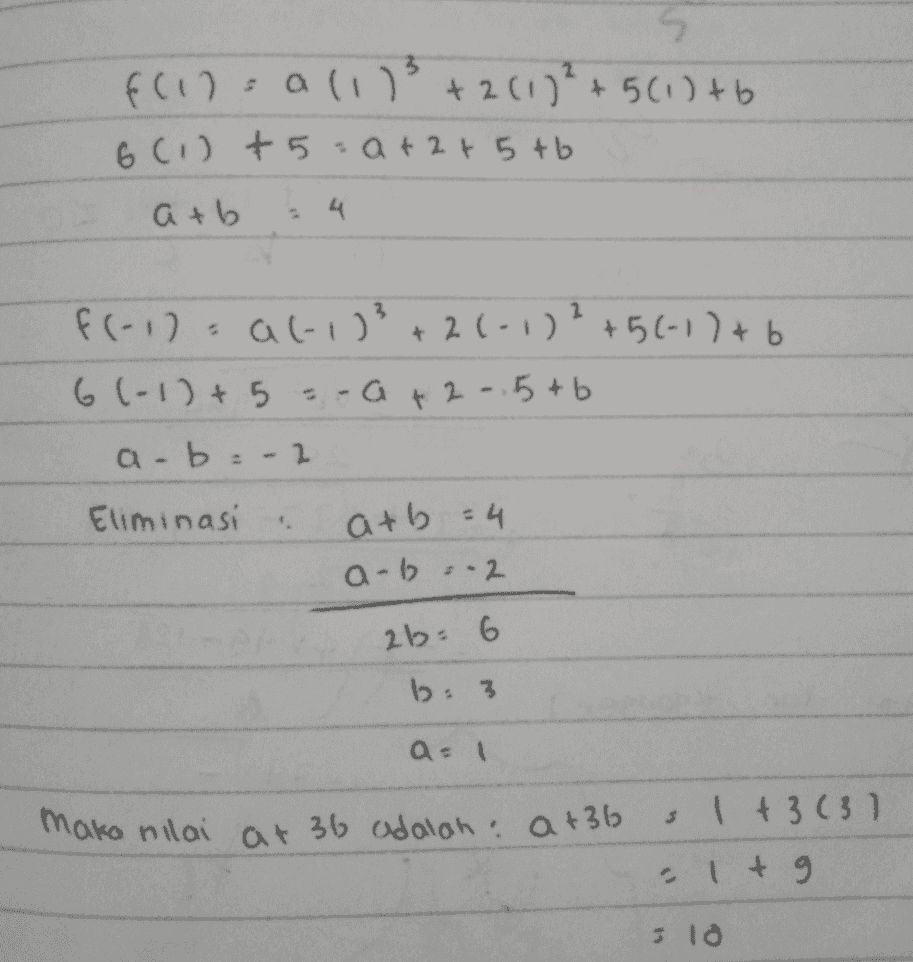 5
f(1) = a(1)³ + 2(1)² + 5(1) + b
6(1) + 5 = a + 2 + 5 + b
a + b = 4
f(-1) = a(-1)³ + 2(-1)² + 5(-1) + b
6(-1) + 5 = -a + 2 - 5 + b
a - b = -2
Eliminasi : a + b = 4
a - b = -2
2b = 6
b = 3
a = 1
Maka nilai a + 3b adalah : a + 3b = 1 + 3(3)
= 1 + 9
= 10